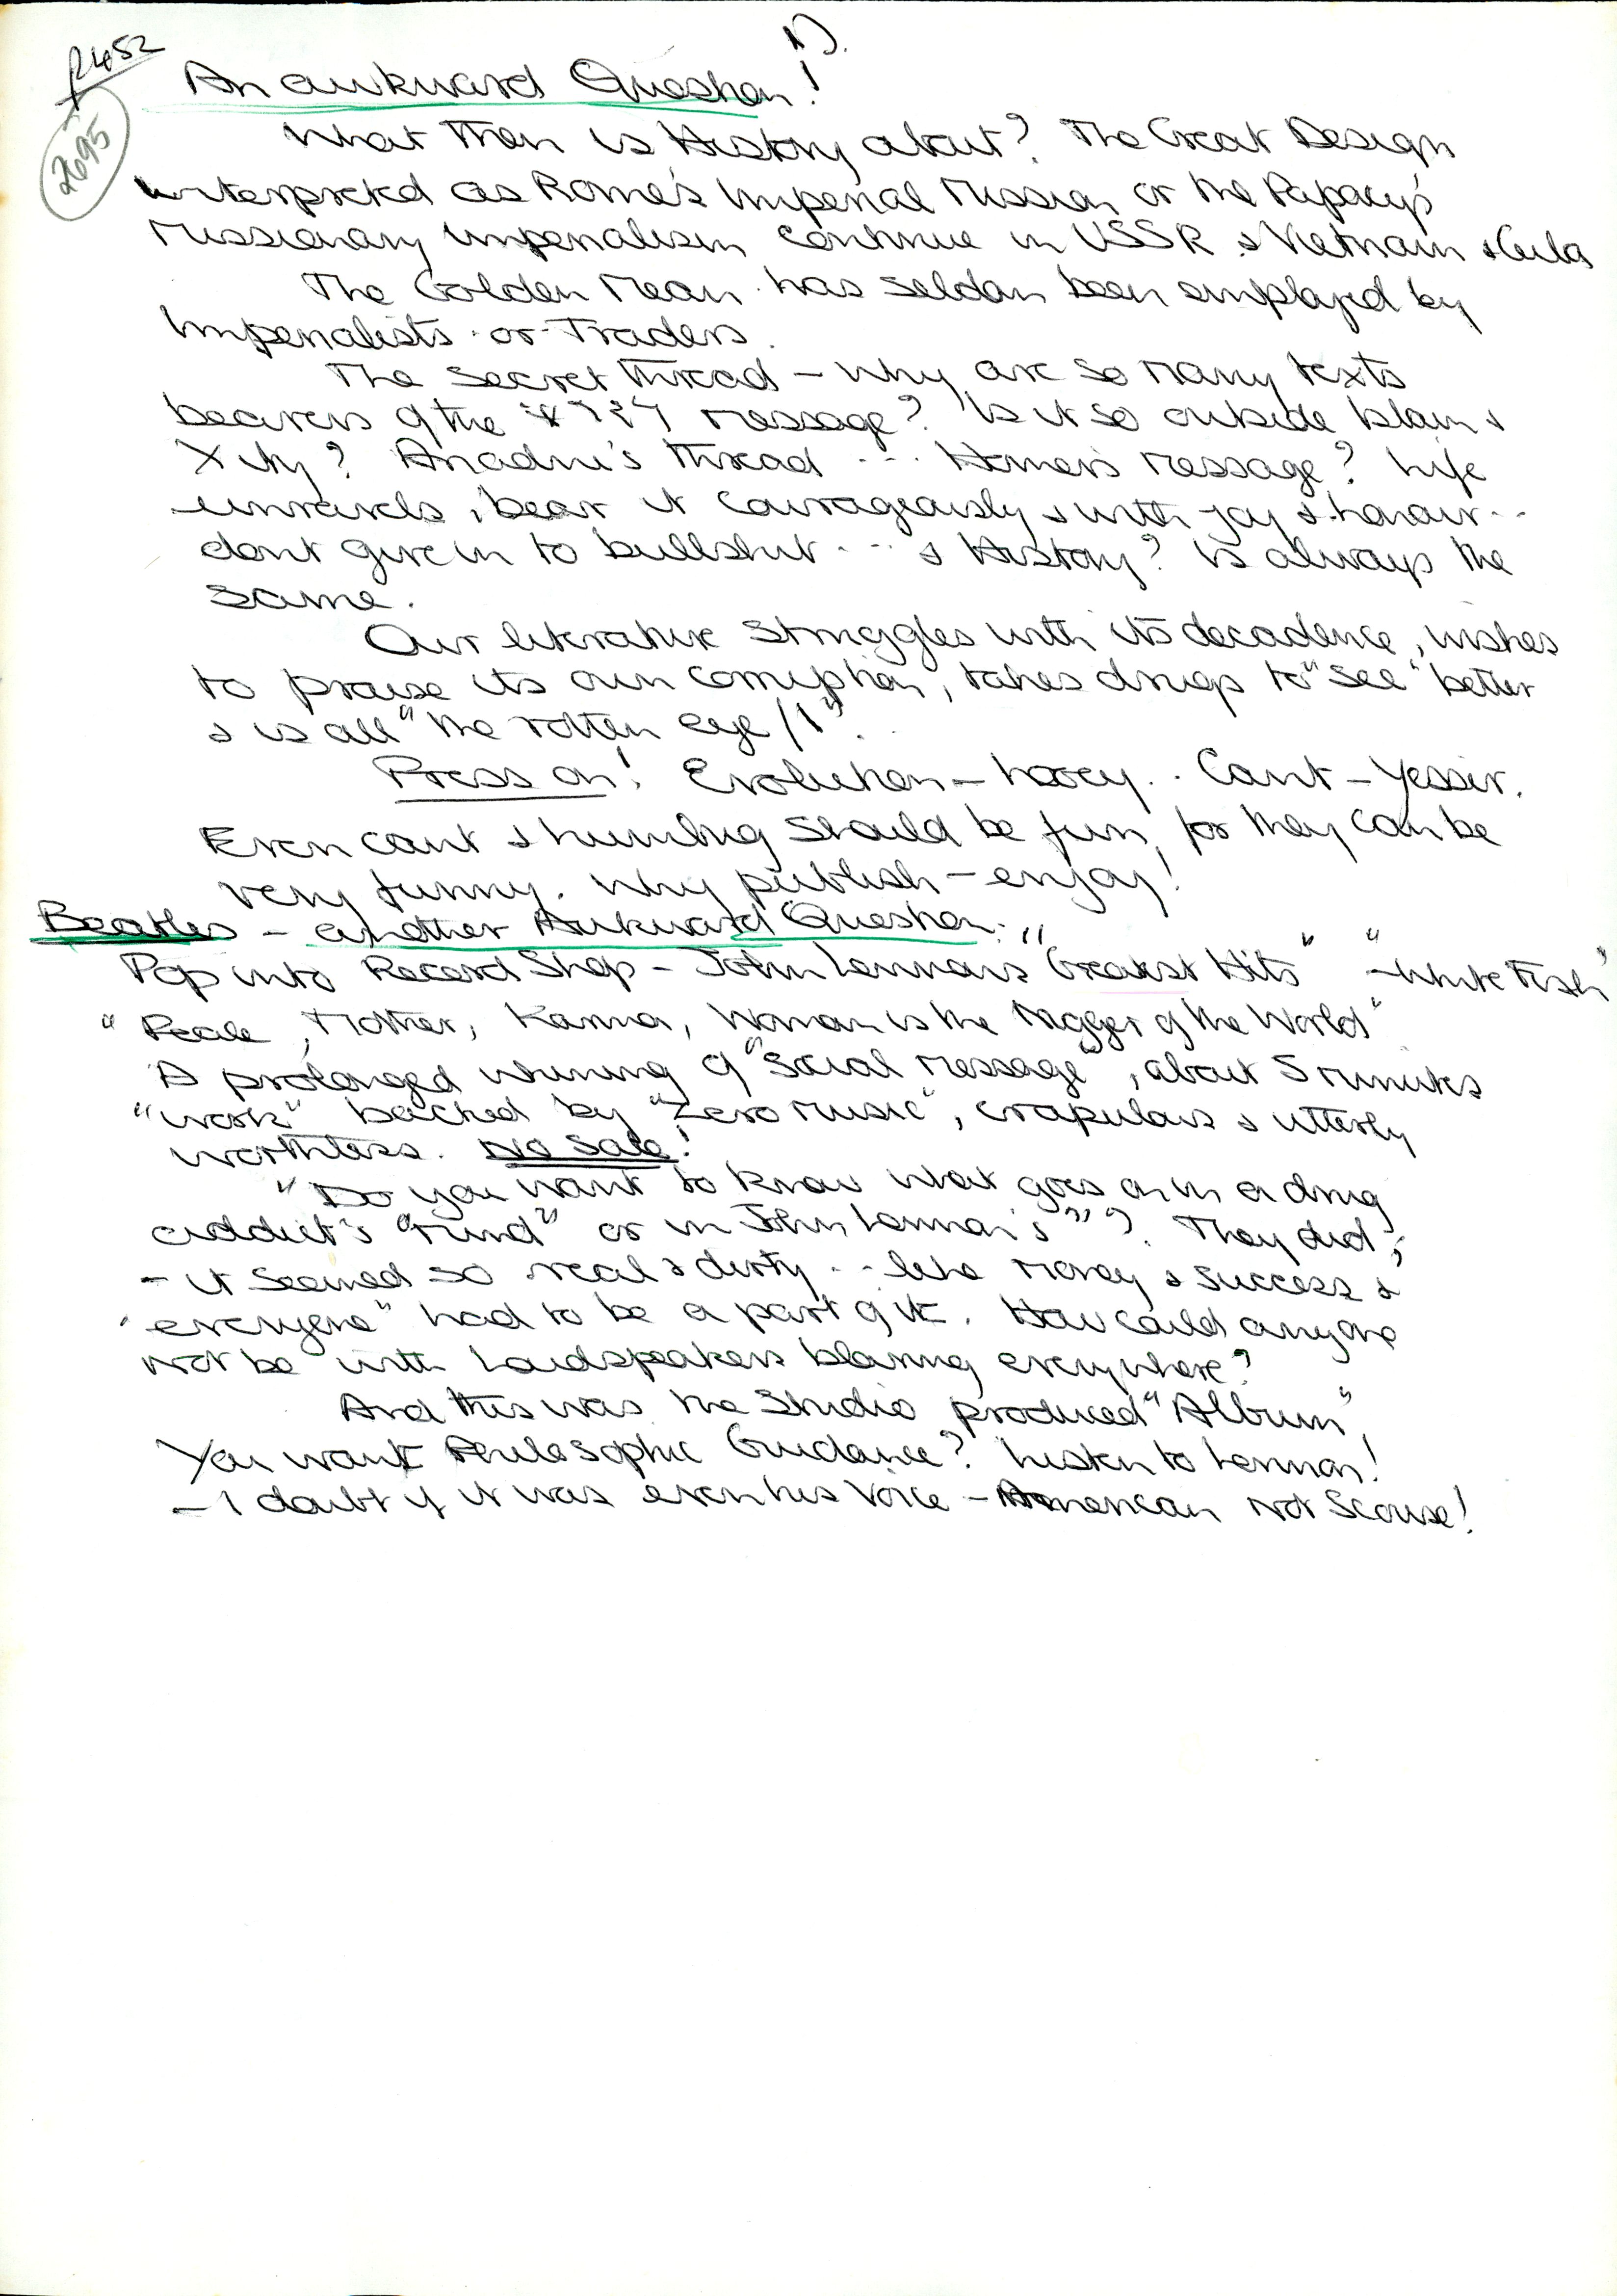 1).
P452
2695
An awkward Question!
What then is History about? The Great Design
interpreted as Rome's Imperial Mission or the Papacy's
Missionary Imperialism continue in USSR & Vietnam & Cuba
The Golden Mean has seldom been employed by
Imperialists or Traders.
The Secret Thread – Why are so many texts
bearers of the message? Is it so outside Islam &
Xity? Ariadne's thread ... Homer's message? Life
unravels, bear it courageously & with joy & honour ..
dont give in to bullshit ... & History? Is always the
same.
Our literature struggles with its decadence, wishes
to praise its own corruption, takes drugs to "see" better
& is all "the rotten eye/I".
Press on! Evolution – hooey.. Cant – Yessir.
Even cant & humbug should be fun, for they can be
very funny. Why publish – enjoy!
Beatles – another Awkward Question.
Pop into Record Shop – John Lennon's "Greatest Hits" "– White Fish"
" Peace, Mother, Karma, Woman is the Nigger of the World"
A prolonged whining of "social message", about 5 minutes
"work" backed by "Zero music", crapulous & utterly
worthless. No Sale!
"Do you want to know what goes on in a drug
addict's "Mind" or in John Lennon's""? They did,
– it seemed so real & dirty .. like money & success &
"everyone" had to be a part of it. How could anyone
not be with Loudspeakers blaring everywhere?
And this was the studio produced "Album",
You want Philosophic Guidance? Listen to Lennon!
– I doubt if it was even his voice – American not Scouse!